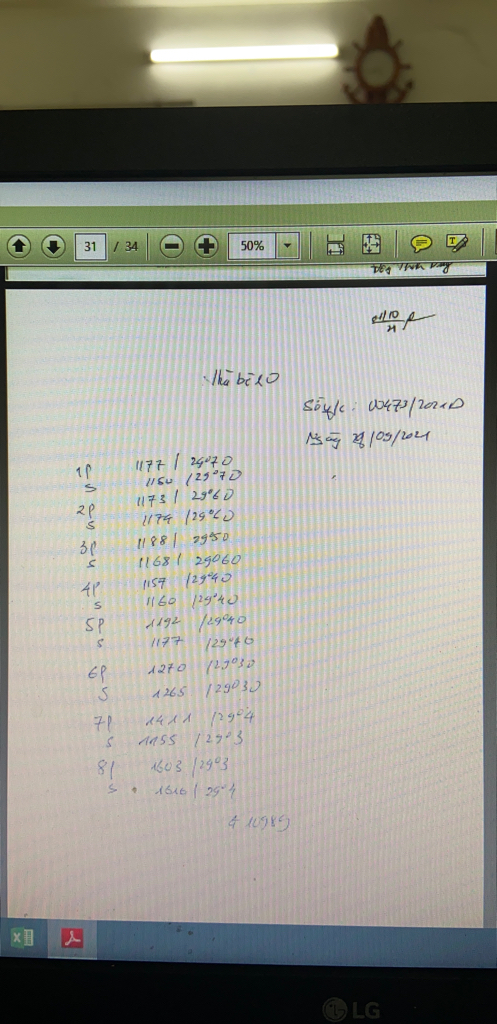 31 / 34
50%
01/10
21
Nhà bè 10
Số y/c : 00473/2021D
Ngày 29/09/2021
1P 1177 / 29°70
S 1150 / 29°70
2P 1173 / 29°60
S 1174 / 29°60
3P 1188 / 29°50
S 1168 / 29°60
4P 1157 / 29°40
S 1160 / 29°40
5P 1192 / 29°40
S 1177 / 29°40
6P 1270 / 29°30
S 1265 / 29°30
7P 1411 / 29°4
S 1455 / 29°3
8P 1603 / 29°3
S 1616 / 29°4
LG